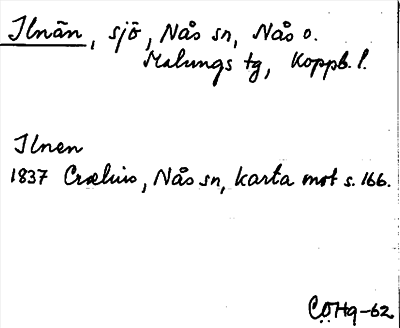 Ilnän, sjö, Nås sn, Nås o.
Malungs tg, Koppb. l.
Ilnen
1837 Crælius, Nås sn, karta mot s. 166.
CÖHq-62